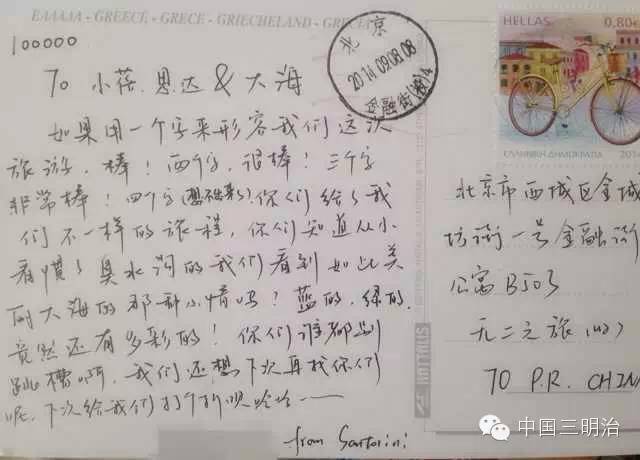 ΕΛΛΑΔΑ - GREECE - GRECE - GRIECHELAND - GRECIA
100000
TO 小蓓.思达 & 大海
如果用一个字来形容我们这次
旅游,棒!两个字,很棒!三个字
非常棒!四个字()你们给了我
们不一样的旅程,你们知道从小
看惯了臭水沟的我们看到如此美
丽大海的那种心情吗?蓝的.绿的.
竟然还有多彩的!你们谁都别
跳槽啊,我们还想下次再找你们
呢,下次给我们打个折呗哈哈——
from Santorini
北京
2014.09.08.08
金融街(投)4
HELLAS 0,80€
ΕΛΛΗΝΙΚΗ ΔΗΜΟΚΡΑΤΙΑ 2014
北京市西城区金城
坊街一号金融街
公寓B503
无二之旅(收)
TO P.R. CHINA
中国三明治